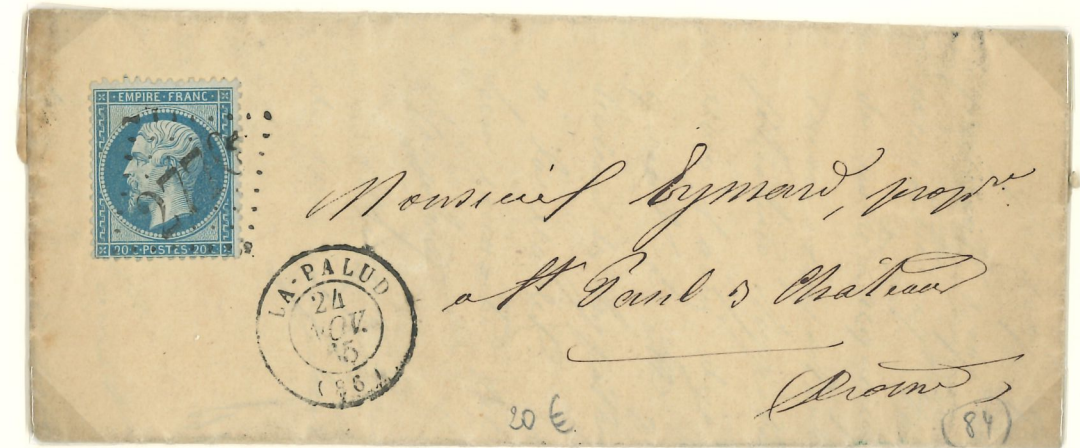 EMPIRE FRANC
20 C POSTES 20 C
LA-PALUD
24
NOV.
65
(86)
Monsieur Eymard, propre
a St Paul 3 Châteaux
Drome
20 €
84